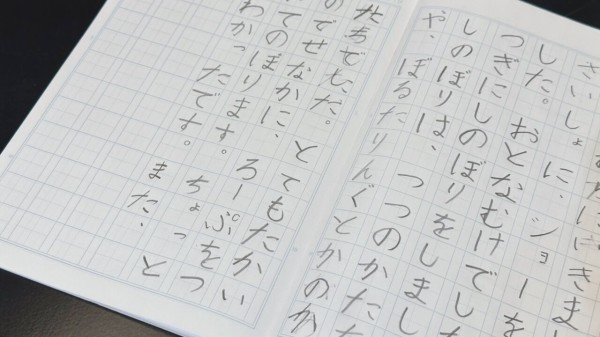 きまし
さいしょに、ショーを
した。おとなむけでし
つぎにしのぼりをしまし
しのぼりは、つつのかた
や、ぼるたりんぐとかのか
とてもたかい
のでせなかに、ろーぷをつ
てのぼります。ちょっ
わかったです。また、と